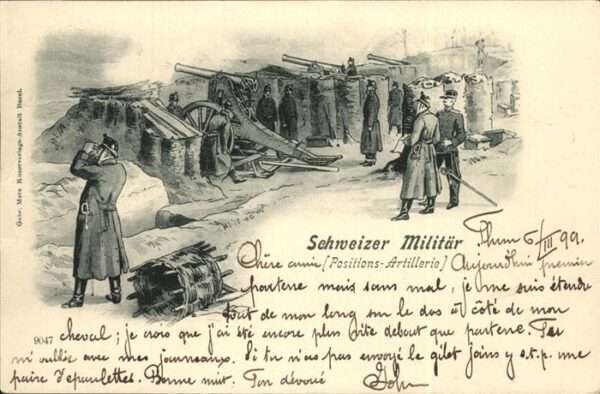 Gebr. Metz Kunstverlags-Anstalt Basel.
Schweizer Militär
(Positions-Artillerie)
Thun 6/III 99.
Chère amie Aujourd'hui premier
parterre mais sans mal, je me suis étendu
tout de mon long sur le dos à côté de mon
9047
cheval; je crois que j'ai été encore plus vite debout que parterre. J'ai
m'oublie avec mes journaux. Si tu n'as pas envoyé le gilet joins y s.t.p. une
paire d'epaulettes. Bonne nuit. Ton dévoué
John